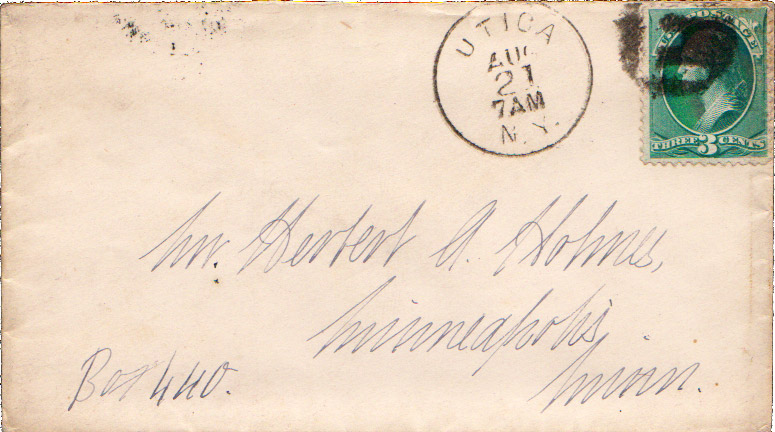 UTICA
AUG
21
7AM
N.Y.
U.S. POSTAGE
THREE 3 CENTS
Mr. Herbert A. Holmes,
Minneapolis,
Minn.
Box 440.